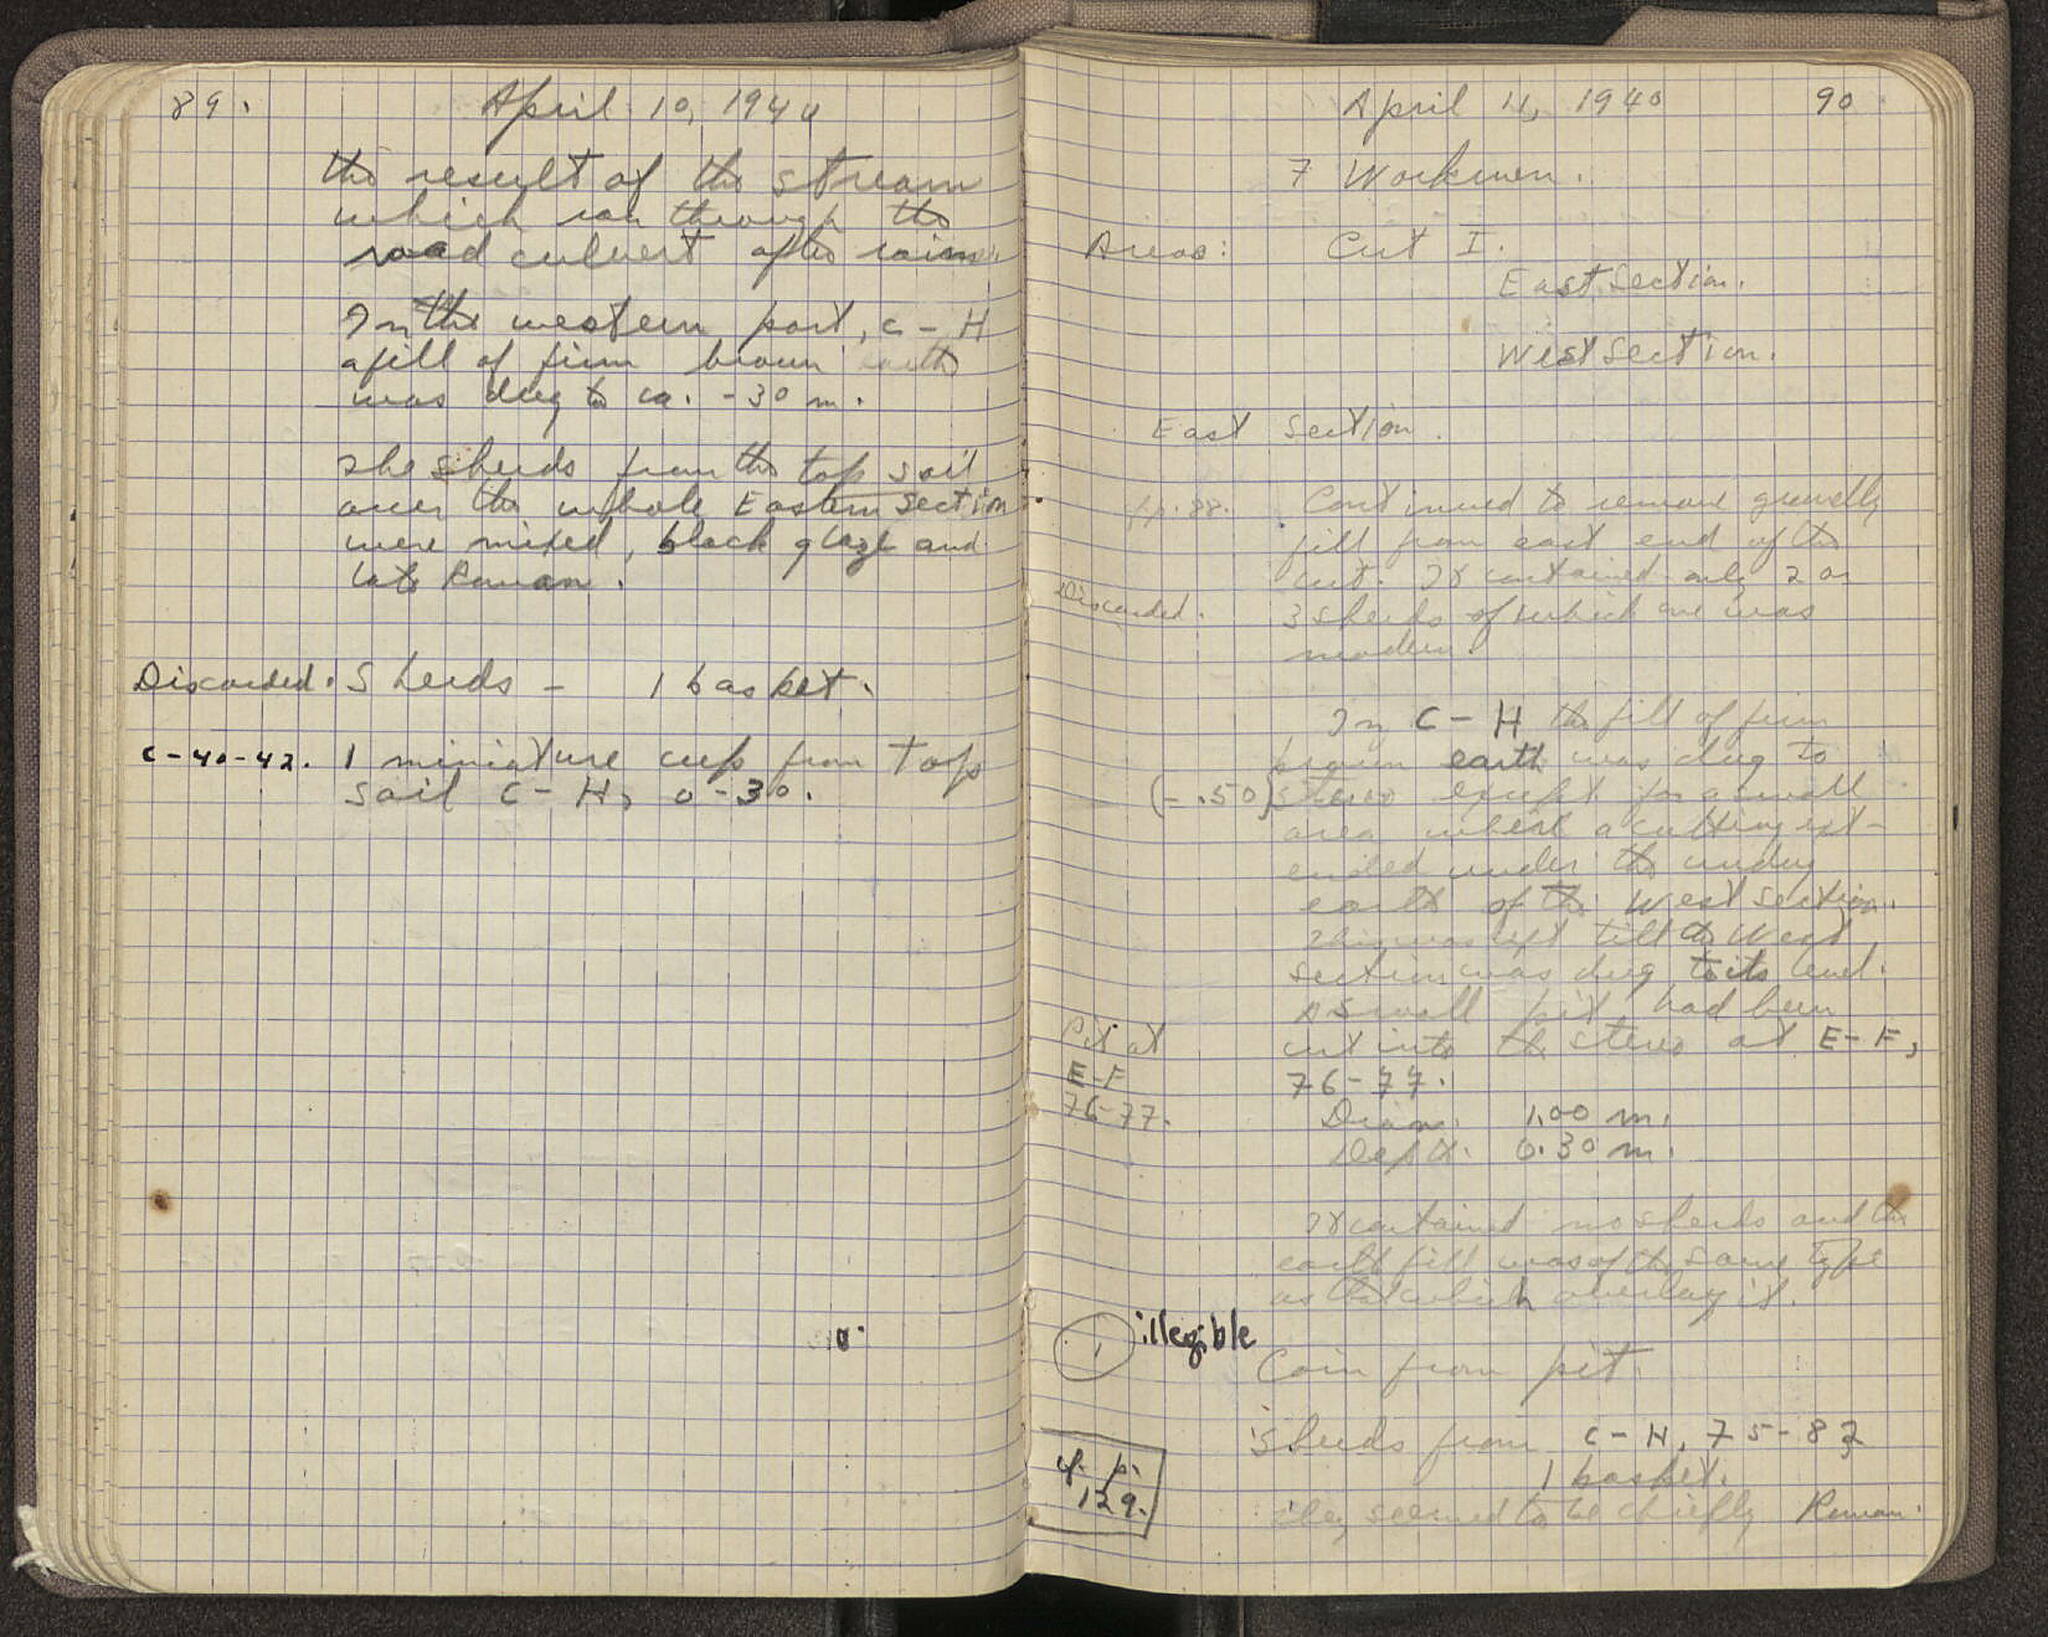 89.
April 10, 1940
the result of the stream
which ran through the
road culvert after rains.
In the western part, C-H
a fill of firm brown earth
was dug to ca. -30 m.
The sherds from the top soil
over the whole Eastern Section
were mixed, black glaze and
late Roman.
Discarded. Sherds - 1 basket.
C-40-42. 1 miniature cup from top
soil C-H, 0-30.
April 11, 1940
90
7 Workmen.
Areas: Cut I.
East Section.
West Section.
East Section.
cf. p. 88. Continued to remove gravelly
fill from east end of the
cut. It contained only 2 or
Discarded. 3 sherds of which one was
modern.
In C-H the fill of firm
brown earth was dug to
(-.50) stereo except for a small
area where a cutting ext-
ended under the undug
earth of the West section.
This was left till the West
section was dug to its level.
A small pit had been
Pit at
cut into the stereo at E-F,
E-F
76-77.
76-77.
Diam. 1.00 m.
Depth. 0.30 m.
It contained no sherds and the
earth fill was of the same type
as that which overlay it.
1 illegible
Coin from pit.
Sherds from C-H, 75-83
1 basket.
cf. p.
129.
They seemed to be chiefly Roman.